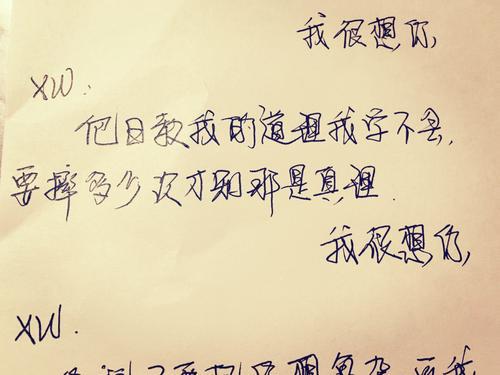 我很想你,
XW.
他日教我的道理我学不会,
要摔多少次才到那是真理.
我很想你,
XW.